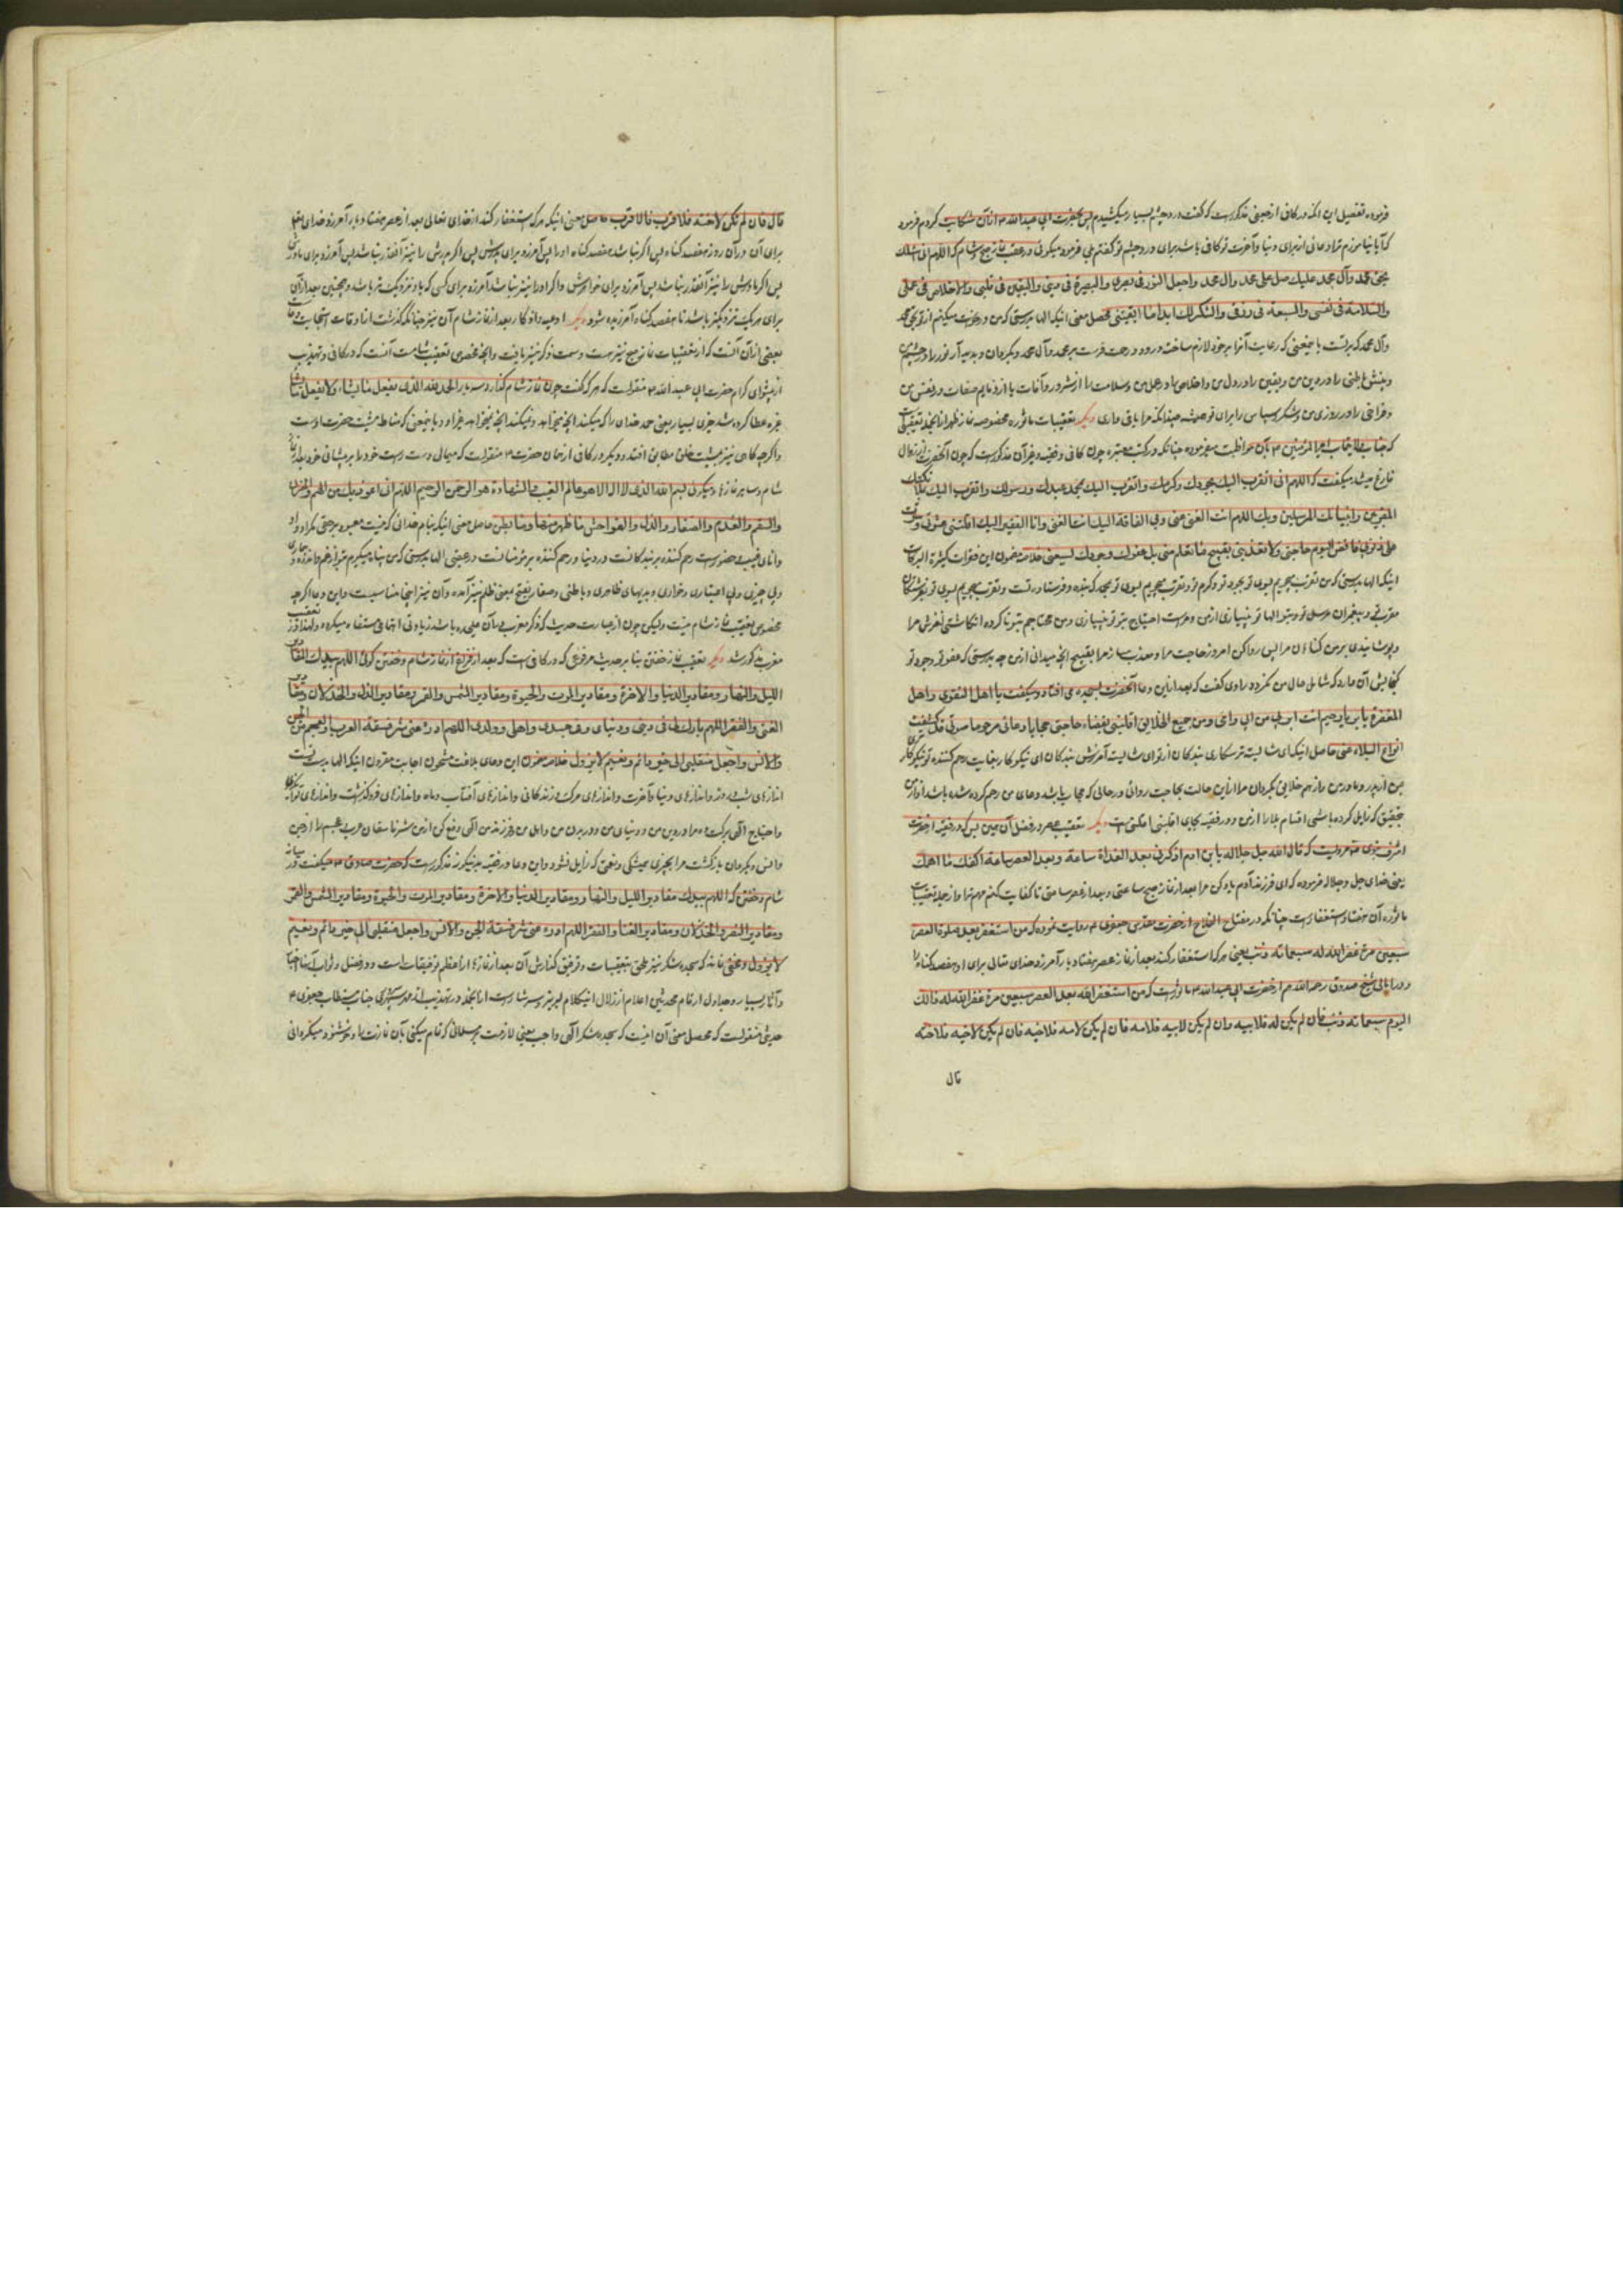 فرموده تفصیل این آنکه در کافی از جعفی مذکور است که گفت درد چشم بسیار میکشیدم پس بحضرت ابی عبدالله ع از آن شکایت کردم فرمود
که آیا نیاموزم ترا دعائی از برای دنیا و آخرت تو کافی باشد برای درد چشم تو گفتم بلی فرمود میگوئی در عقب نماز صبح و شام که اللهم انی اسئلک
بحق محمد وآل محمد علیک صل علی محمد وآل محمد واجعل النور فی بصری والبصیرة فی دینی والیقین فی قلبی والاخلاص فی عملی
والسلامة فی نفسی والسعة فی رزقی والشکر لک ابدا ما ابقیتنی محصل معنی اینکه الها بدرستی که من درخواست میکنم از تو بحق محمد
وآل محمد که بر تست باینمعنی که رعایت آنرا بر خود لازم ساختهٔ درود و رحمت فرست بر محمد وآل محمد وبگردان و پدید آر نور را در چشم من
وبینش باطنی را در دین من ویقین را در دل من واخلاص را در عمل من وسلامت را از شرور وآفات یا از ذمایم صفات در نفس من
وفراخی را در روزی من وشکر وسپاس را برای تو همیشه چندانکه مرا باقی داری دیگر تعقیبات ماثوره مخصوصه نماز ظهر از آنجمله تعقیبی است
که جناب امیر المؤمنین ع بآن مواظبت میفرموده چنانکه در کتب معتبره چون کافی وفقیه وغیر آن مذکور است که چون آنحضرت از زوال
فارغ میشد میگفت که اللهم انی اتقرب الیک بجودک وکرمک واتقرب الیک بمحمد عبدک ورسولک واتقرب الیک بملائکتک
المقربین وانبیائک المرسلین وبک اللهم انت الغنی عنی وبی الفاقة الیک انت الغنی وانا الفقیر الیک اقلتنی عثرتی وسترت
علی ذنوبی فاقض الیوم حاجتی ولا تعذبنی بقبیح ما تعلم منی بل عفوک وجودک یسعنی خلاصه مضمون این فقرات کثیرة البرکات
اینکه الها بدرستی که من تقرب میجویم بسوی تو بجود تو وکرم تو وتقرب میجویم بسوی تو بمحمد که بنده وفرستادهٔ تست وتقرب میجویم بسوی تو بفرشتگان
مقرب تو وپیغمران مرسل تو وبتو الها تو بی نیازی از من ومراست احتیاج بتو تو بی نیازی ومن محتاجم بتو ناکرده انگاشتی لغزش مرا
وپوشانیدی بر من گناهان مرا پس روا کن امروز حاجت مرا ومعذب مساز مرا بقبیح آنچه میدانی از من چه بدرستی که عفو تو وجود تو
گنجایش آن دارد که شامل حال من گردد راوی گفت که بعد از این دعا آنحضرت بسجده می افتاد ومیگفت یا اهل التقوی واهل
المغفرة یا بر یا رحیم انت ابر بی من ابی وامی ومن جمیع الخلایق اقلبنی بقضاء حاجتی مجابا دعائی مرحوما صوتی قد کشفت
انواع البلاء عنی حاصل اینکه ای شایسته ترسکاری بندگان از تو ای شایسته آمرزش بندگان ای نیکوکار بغایت رحم کننده تو نیکوکارتری
بمن از پدر ومادر من واز همه خلایق بگردان مرا از این حالت بحاجت روائی در حالی که مجاب باشد دعای من رحم کرده شده باشد آواز من
بتحقیق که زایل کرده باشی اقسام بلا را از من ودر فقیه بجای اقلبنی اقلنی است دیگر تعقیب عصر در فضل آن همین بس که در فقیه از حضرت
اشرف نبوی ص مرویست که قال الله جل جلاله یا ابن ادم اذکرنی بعد الغداة ساعة وبعد العصر ساعة اکفک ما اهمک
یعنی خدای جل وجلاله فرموده که ای فرزند آدم یاد کن مرا بعد از نماز صبح ساعتی وبعد از عصر ساعتی تا کفایت کنم مهم ترا واز جمله تعقیبات
ماثوره آن هفتاد استغفار است چنانکه در مفتاح الفلاح از حضرت مقدس جعفری ع روایت نموده که من استغفر بعد صلوة العصر
سبعین مرة غفر الله له سبعمائة ذنب یعنی هر که استغفار کند بعد از نماز عصر هفتاد بار آمرزد خدای تعالی برای او هفصد گناه را
ودر امالی شیخ صدوق رحمه الله هم از حضرت ابی عبدالله ع ماثور است که من استغفر الله بعد العصر سبعین مرة غفر الله له ذلک
الیوم سبعمائة ذنب فان لم یکن له فلابیه وان لم یکن لابیه فلامه فان لم یکن لامه فلاخیه فان لم یکن لاخیه فلاخته
قال
قال فان لم تکن لاخته فلاقرب فالاقرب حاصل معنی اینکه هر که استغفار کند از خدای تعالی بعد از عصر هفتاد بار آمرزد خدای تعالی
برای آن در آن روز هفصد گناه پس اگر نباشد هفصد گناه او را پس آمرزد برای پدرش پس اگر پدرش را نیز آنقدر نباشد پس آمرزد برای مادرش
پس اگر مادرش را نیز آنقدر نباشد پس آمرزد برای خواهرش واگر او را نیز نباشد آمرزد برای کسی که باو نزدیکتر باشد وهمچنین بعد از آن
برای هر یک نزدیکتر باشد تا هفصد گناه آمرزیده شود دیگر ادعیه واذکار بعد از نماز شام آن نیز چنانکه گذشت از اوقات استجابت دعاست
بعضی از آن آنست که از تعقیبات نماز صبح نیز هست وسمت ذکر نیز یافت وآنچه مخصوص تعقیب شام است آنست که در کافی وتهذیب
از پیشوای کرام حضرت ابی عبدالله ع منقولست که هر که گفت چون نماز شام گذارد سه بار الحمد لله الذی یفعل ما یشاء ولا یفعل ما یشاء
غیره عطا کرده شد چیزی بسیار یعنی حمد خدای را که میکند آنچه میخواهد ونمیکند آنچه میخواهد غیر او وباینمعنی که مناط مشیت حضرت اوست
واگر چه گاهی نیز مشیت خلق مطابق افتد ودیگر در کافی از همان حضرت ع منقولست که میمالی دست راست خود را بر پیشانی خود بعد از نماز
شام وسایر نمازها ومیگوئی بسم الله الذی لا اله الا هو عالم الغیب والشهادة هو الرحمن الرحیم اللهم انی اعوذ بک من الهم والحزن
والسقم والعدم والصغار والذل والفواحش ما ظهر منها وما بطن حاصل معنی اینکه بنام خدائی که نیست معبود بر حقی مگر او او
دانای غیب وحضور است رحم کننده بر بندگانست در دنیا ورحم کننده بر مؤمنانست در عقبی الها بدرستی که من پناه میگیرم بتو از هم واندوه وبیماری
وبی چیزی وبی اعتباری وخواری وبدیهای ظاهری وباطنی وصغار بفتح بمعنی ظلم نیز آمده وآن نیز اینجا مناسبست واین دعا اگر چه
مخصوص تعقیب نماز شام نیست ولیکن چون از عبارت حدیث که ذکر مغرب بر آن علی حده باشد زیادتی اهتمامی مستفاد میگردد ولهذا در تعقیب
مغرب مذکور شد دیگر تعقیب نماز خفتن بنابر حدیث مرفوعی که در کافی است که بعد از فراغ از نماز شام وخفتن گوئی اللهم بیدک مقادیر
اللیل والنهار ومقادیر الدنیا والاخرة ومقادیر الموت والحیوة ومقادیر الشمس والقمر ومقادیر النصر والخذلان ومقادیر
الغنی والفقر اللهم بارک لی فی دینی ودنیای وفی جسدی واهلی وولدی اللهم ادرء عنی شر فسقة العرب والعجم والجن
والانس واجعل منقلبی الی خیر دائم ونعیم لا یزول خلاصه مضمون این دعای بلاغت مشحون اجابت مقرون اینکه الها بدست تست
اندازهای شب وروز واندازهای دنیا وآخرت واندازهای مرگ وزندگانی واندازهای آفتاب وماه واندازهای فروگذاشت واندازهای توانگری
واحتیاج الهی برکت ده مرا در دین من ودنیای من ودر بدن من واهل من وفرزند من الهی دفع کن از من شر فاسقان عرب وعجم را از جن
وانس وبگردان بازگشت مرا بچیزی همیشگی ونعمتی که زایل نشود واین دعا در فقیه نیز مذکور است که حضرت صادق ع میگفت در میانه
شام وخفتن که اللهم بیدک مقادیر اللیل والنهار ومقادیر الدنیا والاخرة ومقادیر الموت والحیوة ومقادیر الشمس والقمر
ومقادیر النصر والخذلان ومقادیر الغنا والفقر اللهم ادرء عنی شر فسقة الجن والانس واجعل منقلبی الی خیر دائم ونعیم
لا یزول ومخفی نماند که سجده شکر نیز ملحق بتعقیبات وتوفیق گذارش آن بعد از نمازها از اعظم توفیقات است ودر فضل وثواب آن اخبار
وآثار بسیار وجداول ارقام محدثین اعلام از زلال اینکلام لبریز وسرشار است از آنجمله در تهذیب
حدیثی منقولست که محصل معنی آن اینست که سجده شکر الهی واجب یعنی لازمست بر مسلمانی که تمام میکنی بآن نمازت را وخوشنود میگردانی